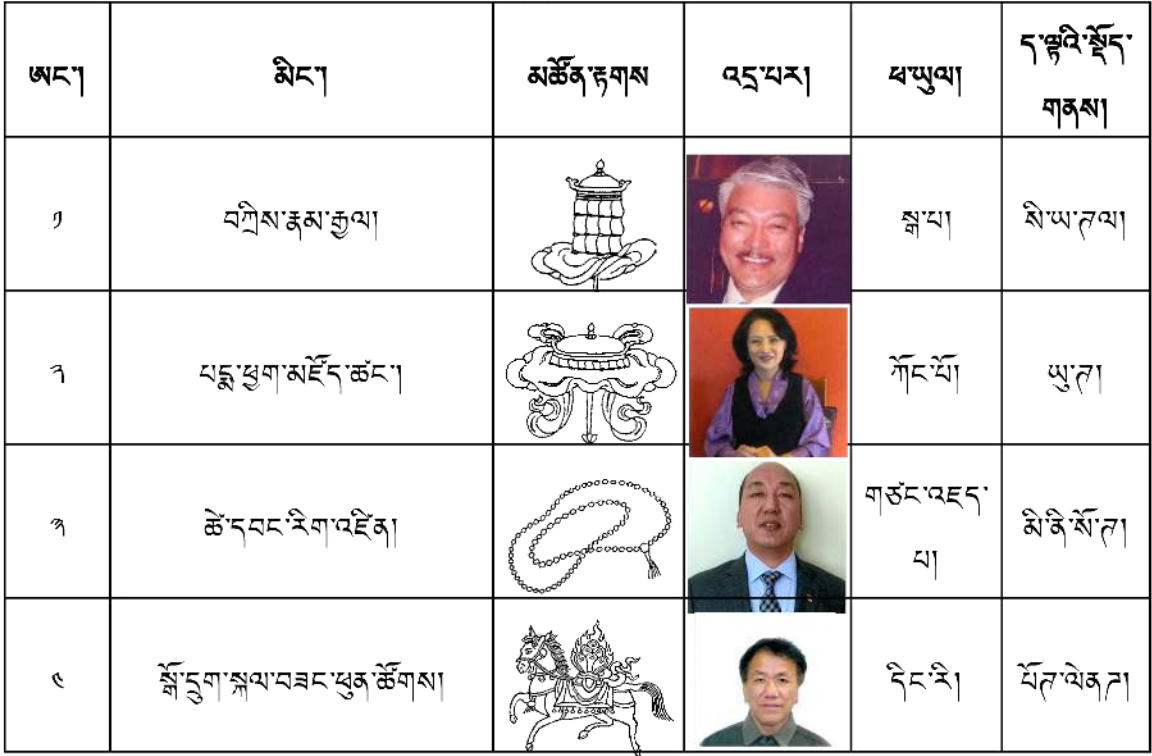 ཨང་། མིང་། མཚོན་རྟགས འདྲ་པར། ཕ་ཡུལ། ད་ལྟའི་སྡོད་
གནས།
༡ བཀྲིས་རྣམ་རྒྱལ། སྒ་པ། སི་ཡ་ཊལ།
༢ པདྨ་ཕྱག་མཛོད་ཚང་། ཀོང་པོ། ཡུ་ཊ།
༣ ཚེ་དབང་རིག་འཛིན། གཙང་འཇད་
པ། མི་ནི་སོ་ཊ།
༤ སྒོ་དྲུག་སྐལ་བཟང་ཕུན་ཚོགས། དིང་རི། པོཊ་ལེནཌ།